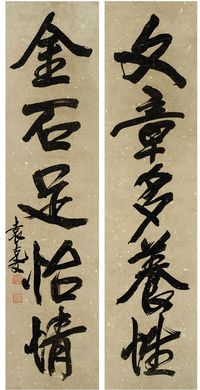 文章多養性
金石足怡情
袁克文